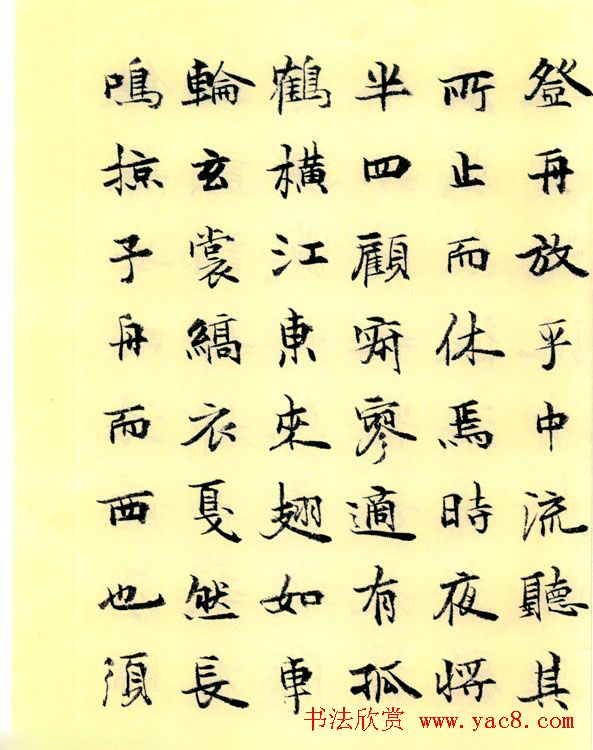 登舟放乎中流聽其
所止而休焉時夜將
半四顧寂寥適有孤
鶴橫江東來翅如車
輪玄裳縞衣戛然長
鳴掠予舟而西也須
书法欣赏 www.yac8.com